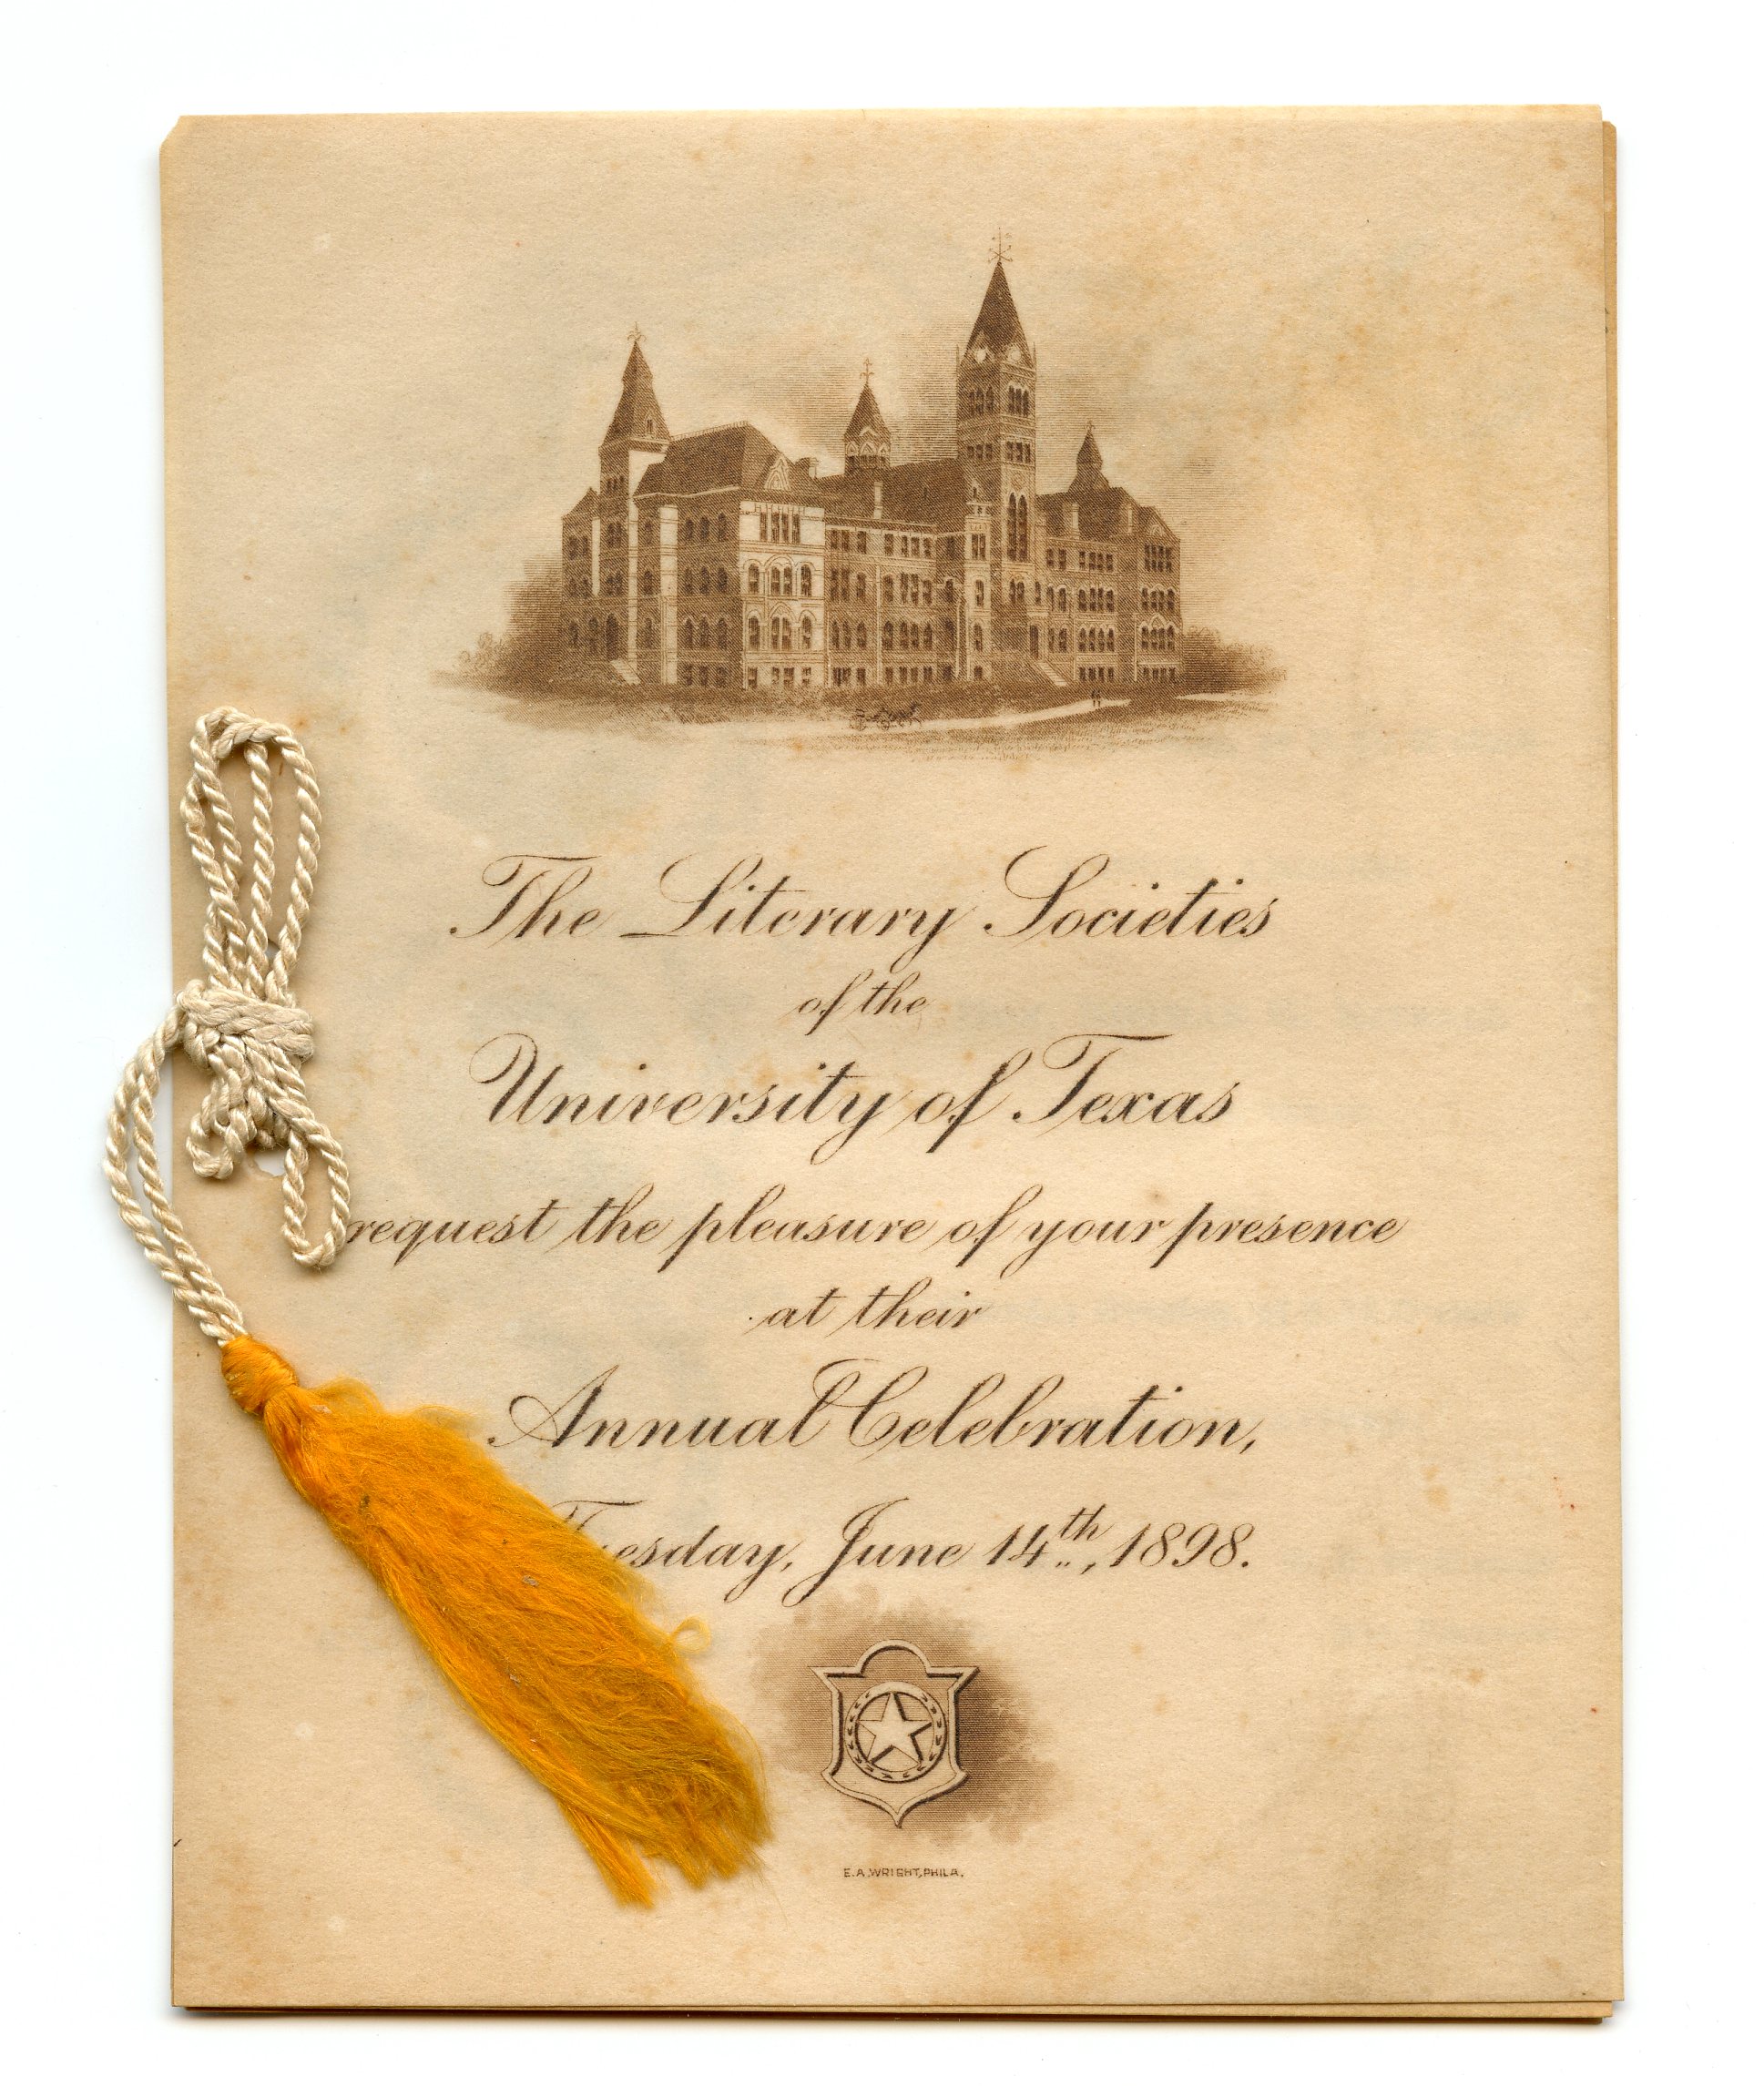 The Literary Societies
of the
University of Texas
request the pleasure of your presence
at their
Annual Celebration,
Tuesday, June 14th, 1898.
E.A.WRIGHT, PHILA.